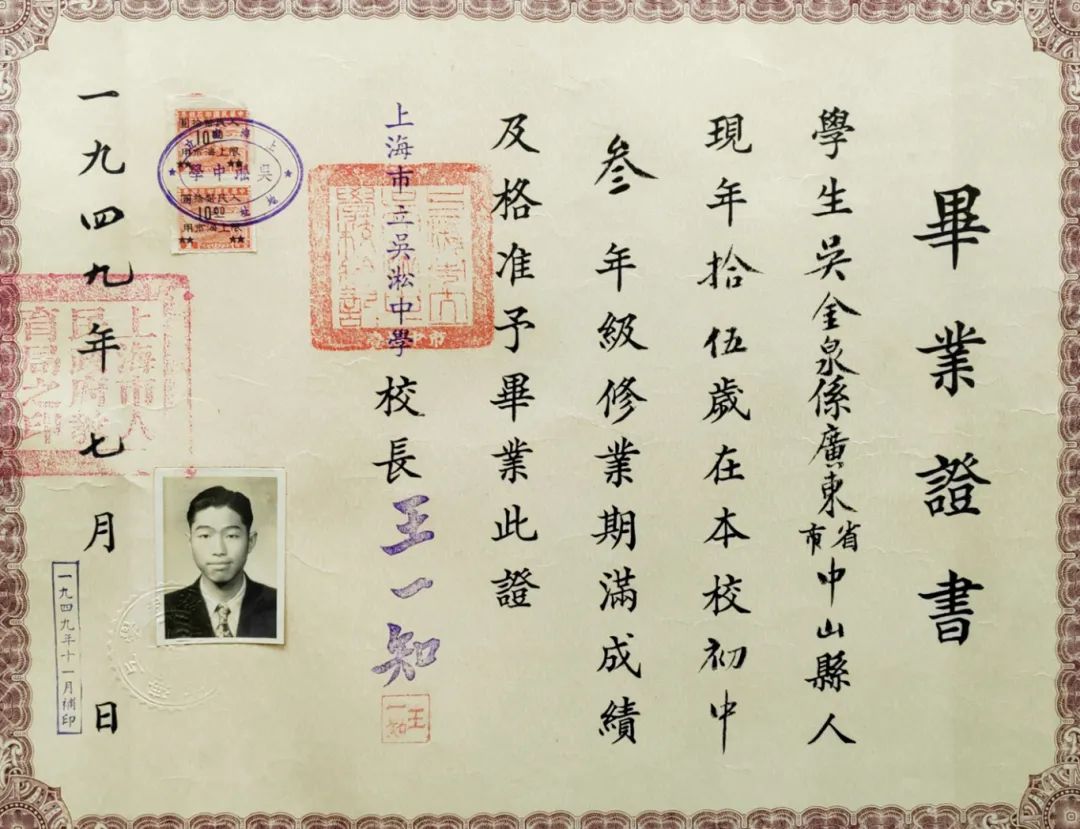 畢業證書
學生吳金泉係廣東省市中山縣人
現年拾伍歲在本校初中
叁年級修業期滿成績
及格准予畢業此證
上海市立吳淞中學校長王一知
王一知
一九四九年七月日
上海市人民政府教育局之印
吳淞中學
10
限上海市用
10.00
限上海市用
一九四九年十一月補印